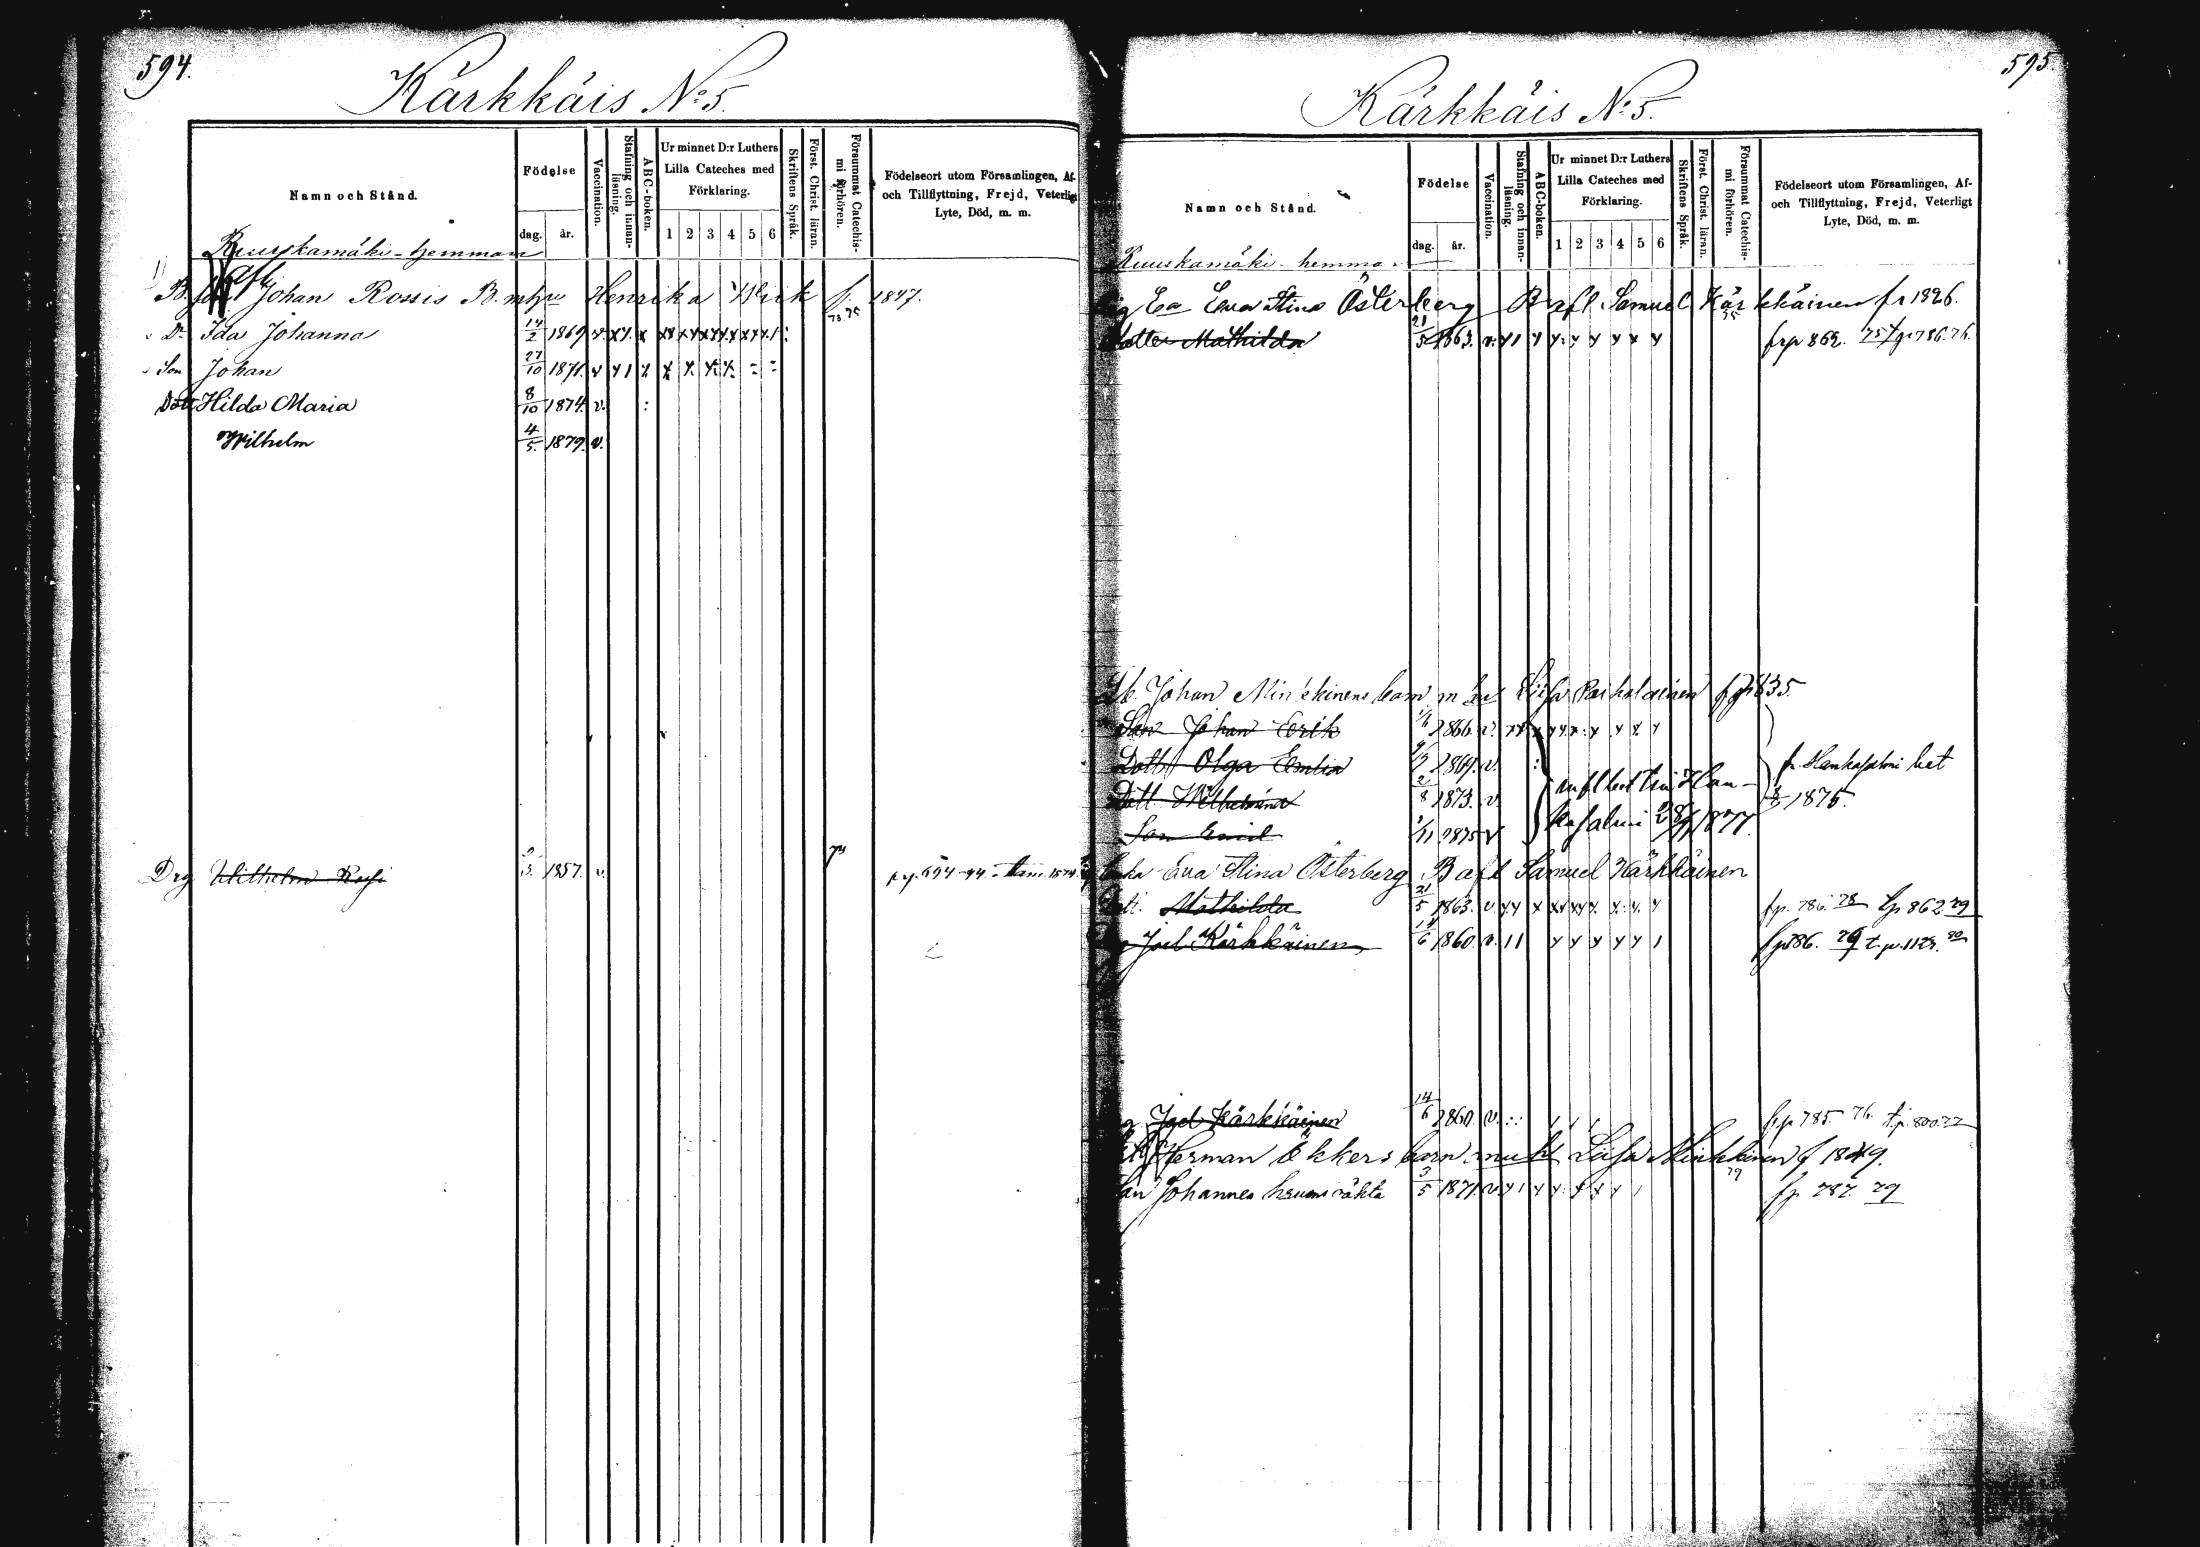 594.
Kärkkäis No 5.
Namn och Stånd.
Födelse
dag.
år.
Vaccination.
Stafning och innanläsning.
ABC-boken.
Ur minnet D:r Luthers Lilla Cateches med Förklaring.
1 2 3 4 5 6
Skriftens Språk.
Först. Christ. läran.
Försummat Catechismi förhören.
Födelseort utom Församlingen, Af- och Tillflyttning, Frejd, Veterligt Lyte, Död, m. m.
Ruuskamäki-hemman
B. Johan Rossis B. m hu Henrika Wirk f. 1847.
73.75
Dr Ida Johanna 14/2 1869 v.
Son Johan 27/10 1871. v
Dott Hilda Maria 8/10 1874 v.
Wilhelm 4/5. 1879. v.
Drg Wilhelm Rossi 5. 1857. v.
595
Kärkkäis No 5.
Namn och Stånd.
Födelse
dag.
år.
Vaccination.
Stafning och innanläsning.
ABC-boken.
Ur minnet D:r Luthers Lilla Cateches med Förklaring.
1 2 3 4 5 6
Skriftens Språk.
Först. Christ. läran.
Försummat Catechismi förhören.
Födelseort utom Församlingen, Af- och Tillflyttning, Frejd, Veterligt Lyte, Död, m. m.
Ruuskamäki hemma
Ea Eva Stina Österberg B afl Samuel Kärkkäinen f 1826.
Dotter Mathilda 21/5 1863. v. frp 862. 75 786. 76.
Johan Minkkinens barn m hu Liisa f 1835.
Son Johan Erik 1866. v.
Dott Olga Emlia 1869. v. fr Hankasalmi bet
Dott Wilhelmina 2/8 1873. v. 1875.
Son Emil 1875 v 1877
Enka Eva Stina Österberg B afl Samuel Kärkkäinen
Dott. Mathilda 21/5 1863. v. fp. 786. 78 tp 862 79
Joel Kärkkäinen 14/6 1860. v. fp 786. 79 t.p. 1123. 80
Joel Kärkkäinen 14/6 1860. v. frp 785 76. t.p. 800. 77
Herman Ökkers barn m h Liisa Minkkinen f 1849.
79
Son Johannes 3/5 1871. v. fp. 787. 79